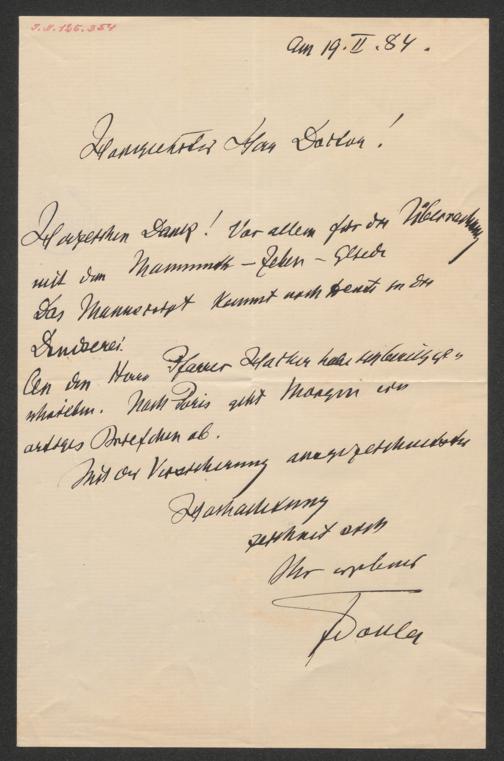 I.N. 126.354
am 19. II. 84.
Hochgeehrter Herr Doctor!
Herzlichen Dank! Vor allem für die Überraschung
mit dem Mammuth – Zehen – Gliede
Das Manuscript kommt noch heute in die
Druckerei.
An den Herrn Pfarrer habe ich bereits ge-
schrieben. Nach Paris geht Morgen ein
artiges Briefchen ab.
Mit der Versicherung ausgezeichneter
Hochachtung
zeichnet sich
Ihr ergebener